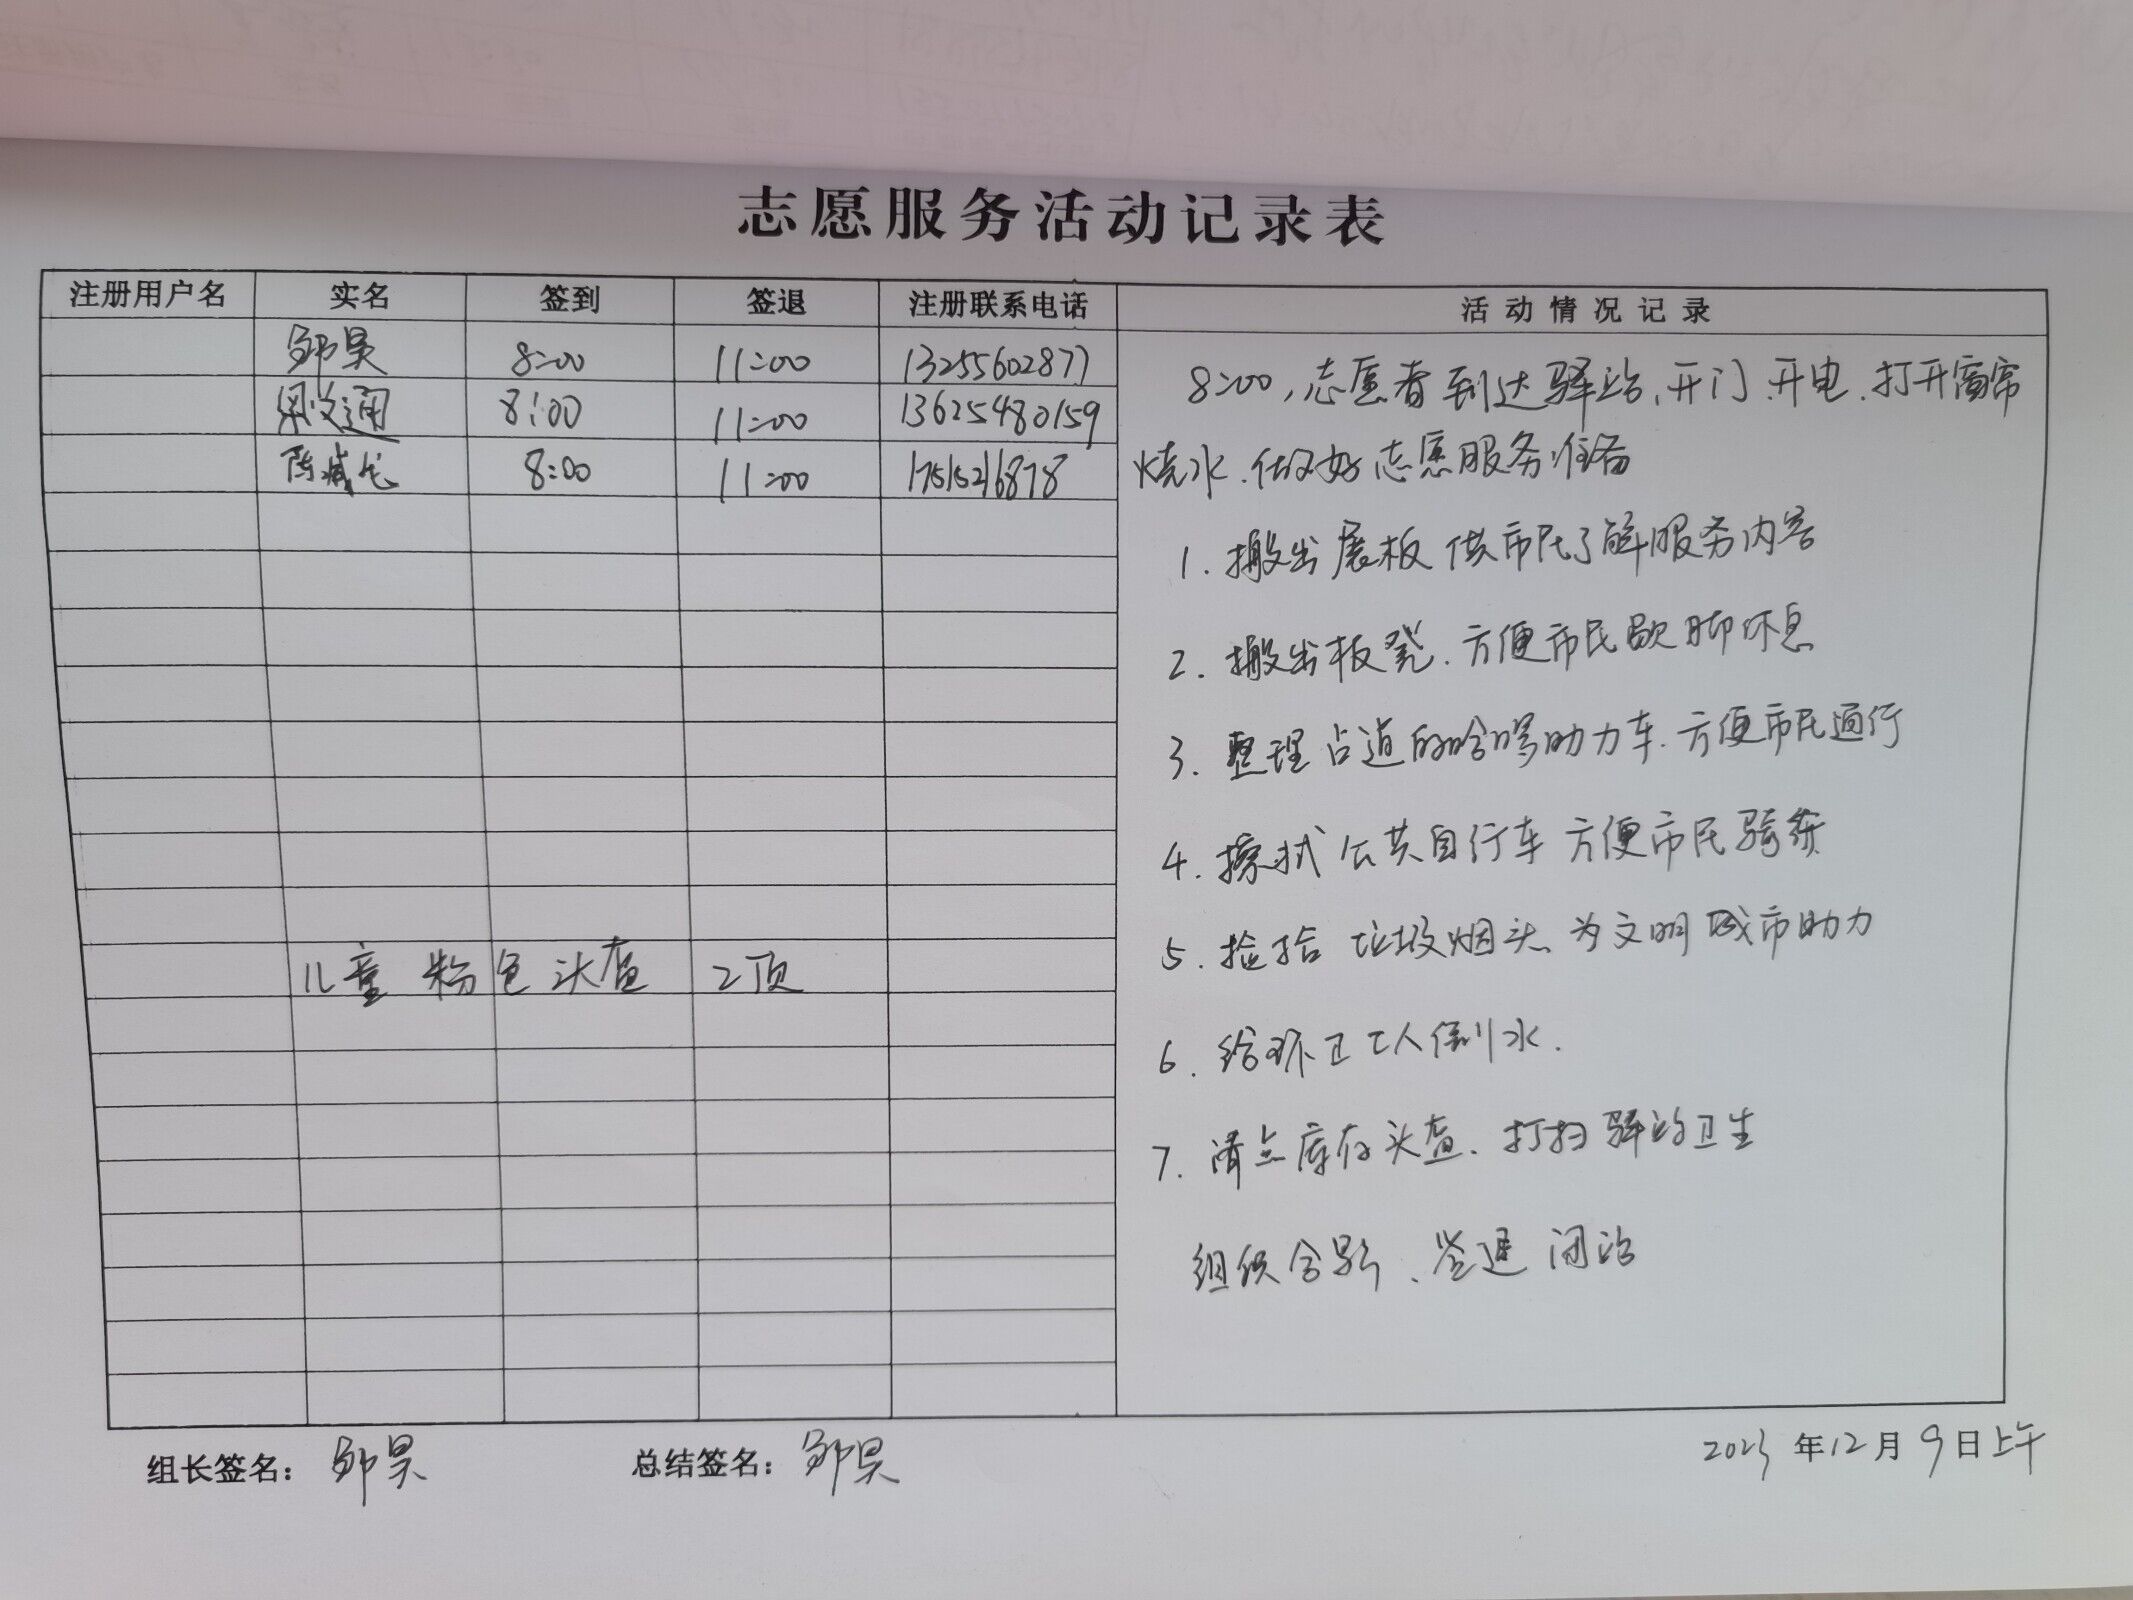 志愿服务活动记录表
注册用户名 实名 签到 签退 注册联系电话 活动情况记录
邹昊 8:00 11:00 13255602877
梁文通 8:00 11:00 13625480159
陈 8:00 11:00 17515216878
儿童 粉色 头盔 2顶
8:00,志愿者到达驿站、开门.开电.打开窗帘
烧水.做好志愿服务准备
1.搬出展板 供市民了解服务内容
2.搬出板凳.方便市民歇脚休息
3.整理占道的哈啰助力车.方便市民通行
4.擦拭公共自行车 方便市民骑乘
5.捡拾 垃圾烟头、为文明城市助力
6.给环卫工人倒水.
7.清点库存头盔.打扫驿站卫生
组织合影、签退 闭站
组长签名: 邹昊 总结签名: 邹昊 2023年12月9日上午